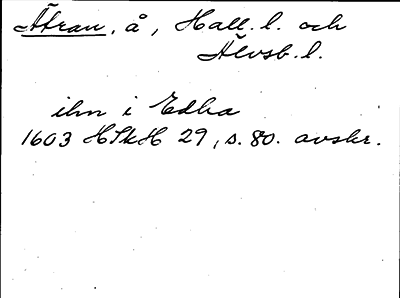 Ätran, å, Hall. l. och
Älvsb. l.
ihn i Edha
1603 HSkH 29, s. 80. avskr.